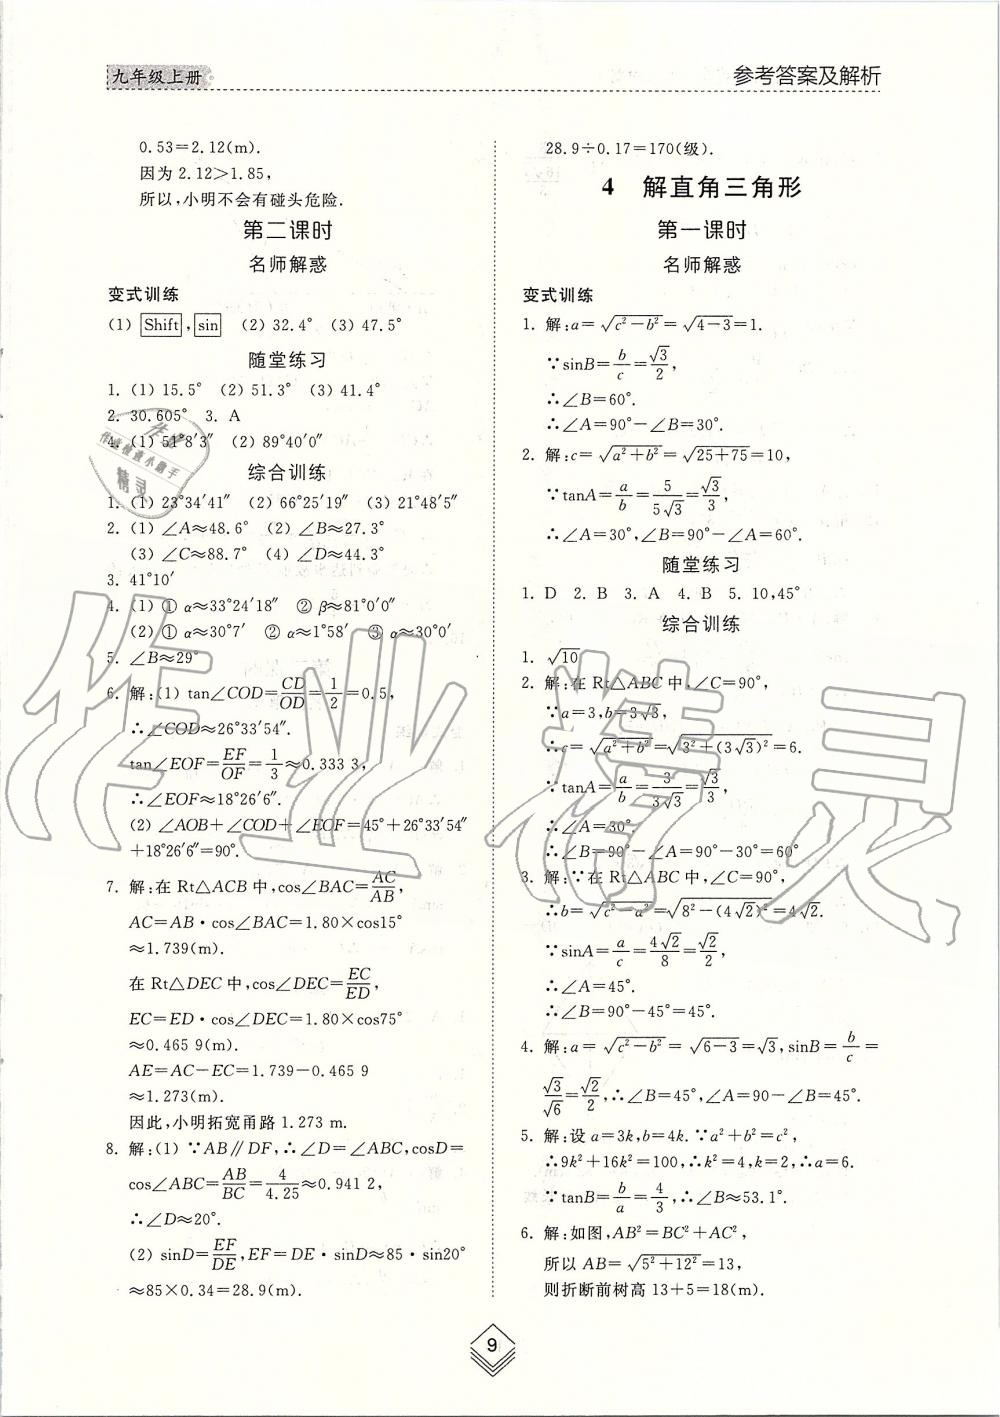 九年级上册
参考答案及解析
0.53=2.12(m).
因为 2.12>1.85,
所以,小明不会有碰头危险.
第二课时
名师解惑
变式训练
(1) Shift , sin (2) 32.4° (3) 47.5°
随堂练习
1. (1) 15.5° (2) 51.3° (3) 41.4°
2. 30.605° 3. A
4. (1) 51°8′3″ (2) 89°40′0″
综合训练
1. (1) 23°34′41″ (2) 66°25′19″ (3) 21°48′5″
2. (1) ∠A≈48.6° (2) ∠B≈27.3°
(3) ∠C≈88.7° (4) ∠D≈44.3°
3. 41°10′
4. (1) ① α≈33°24′18″ ② β≈81°0′0″
(2) ① α≈30°7′ ② α≈1°58′ ③ α≈30°0′
5. ∠B≈29°
6. 解:(1) tan∠COD=CD/OD=1/2=0.5,
∴∠COD≈26°33′54″.
tan∠EOF=EF/OF=1/3≈0.333 3,
∴∠EOF≈18°26′6″.
(2) ∠AOB+∠COD+∠EOF=45°+26°33′54″
+18°26′6″=90°.
7. 解:在 Rt△ACB 中,cos∠BAC=AC/AB,
AC=AB·cos∠BAC=1.80×cos15°
≈1.739(m).
在 Rt△DEC 中,cos∠DEC=EC/ED,
EC=ED·cos∠DEC=1.80×cos75°
≈0.465 9(m).
AE=AC-EC=1.739-0.465 9
≈1.273(m).
因此,小明拓宽甬路 1.273 m.
8. 解:(1) ∵AB∥DF,∴∠D=∠ABC,cosD=
cos∠ABC=AB/BC=4/4.25≈0.941 2,
∴∠D≈20°.
(2) sinD=EF/DE,EF=DE·sinD≈85·sin20°
≈85×0.34=28.9(m).
28.9÷0.17=170(级).
4 解直角三角形
第一课时
名师解惑
变式训练
1. 解:a=√(c²-b²)=√(4-3)=1.
∵sinB=b/c=√3/2,
∴∠B=60°.
∴∠A=90°-∠B=30°.
2. 解:c=√(a²+b²)=√(25+75)=10,
∵tanA=a/b=5/5√3=√3/3,
∴∠A=30°,∠B=90°-∠A=60°.
随堂练习
1. D 2. B 3. A 4. B 5. 10,45°
综合训练
1. √10
2. 解:在 Rt△ABC 中,∠C=90°,
∵a=3,b=3√3,
∴c=√(a²+b²)=√(3²+(3√3)²)=6.
∵tanA=a/b=3/3√3=√3/3,
∴∠A=30°.
∴∠B=90°-∠A=90°-30°=60°
3. 解:∵在 Rt△ABC 中,∠C=90°,
∴b=√(c²-a²)=√(8²-(4√2)²)=4√2.
∵sinA=a/c=4√2/8=√2/2,
∴∠A=45°.
∴∠B=90°-45°=45°.
4. 解:a=√(c²-b²)=√(6-3)=√3,sinB=b/c=
√3/√6=√2/2,∴∠B=45°,∠A=90-∠B=45°.
5. 解:设 a=3k,b=4k.∵a²+b²=c²,
∴9k²+16k²=100,∴k²=4,k=2,∴a=6.
∵tanB=b/a=4/3,∴∠B≈53.1°.
6. 解:如图,AB²=BC²+AC²,
所以 AB=√(5²+12²)=13,
则折断前树高 13+5=18(m).
9
作业精灵